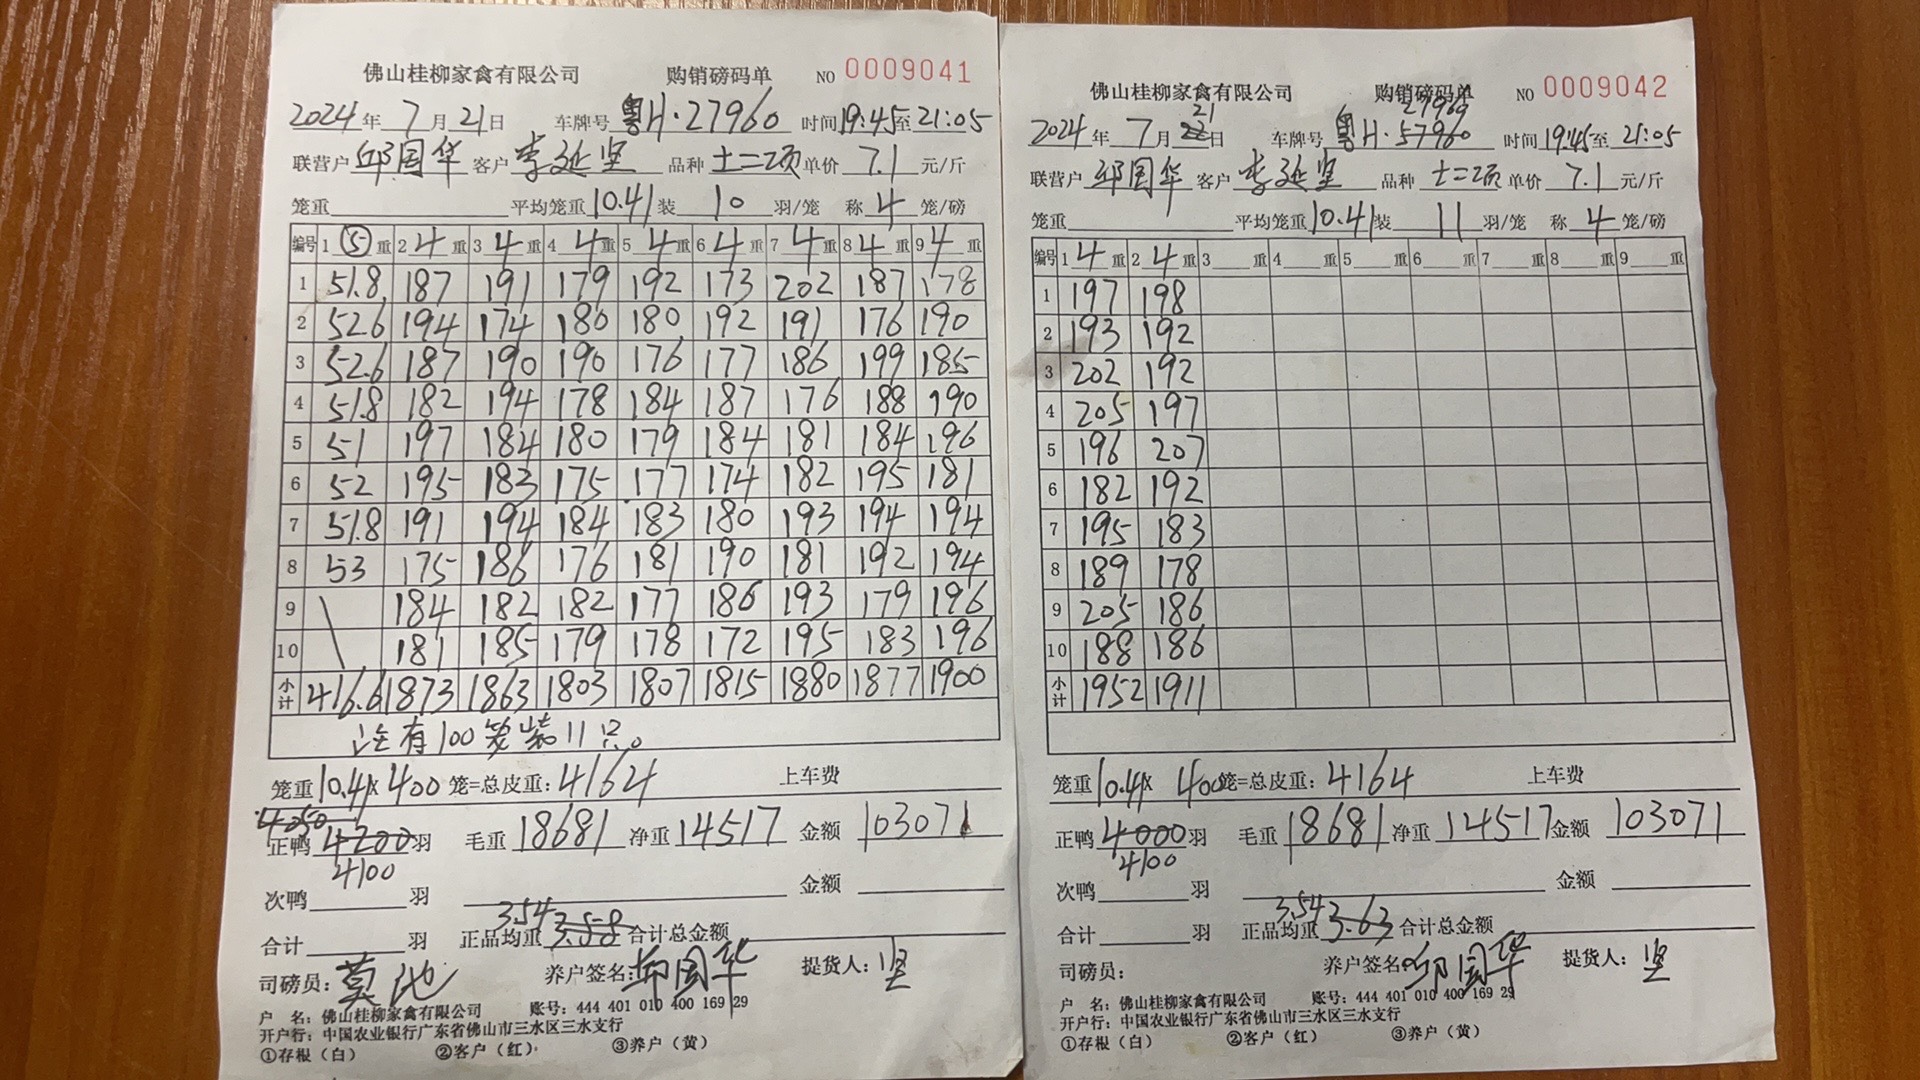 佛山桂柳家禽有限公司 购销磅码单 NO 0009041
2024年7月21日 车牌号 粤H·27960 时间19:45至21:05
联营户 邱国华 客户 李延坚 品种 土二项 单价 7.1 元/斤
笼重 平均笼重10.41装 10 羽/笼 称 4 笼/磅
编号 1 5 重 2 4 重 3 4 重 4 4 重 5 4 重 6 4 重 7 4 重 8 4 重 9 4 重
1 51.8 187 191 179 192 173 202 187 178
2 52.6 194 174 180 180 192 191 176 190
3 52.6 187 190 190 176 177 186 199 185
4 51.8 182 194 178 184 187 176 188 190
5 51 197 184 180 179 184 181 184 196
6 52 195 183 175 177 174 182 195 181
7 51.8 191 194 184 183 180 193 194 194
8 53 175 186 176 181 190 181 192 194
9 \ 184 182 182 177 186 193 179 196
10 \ 181 185 179 178 172 195 183 196
小计 416.6 1873 1863 1803 1807 1815 1880 1877 1900
注有100笼装11只。
笼重10.41x 400 笼=总皮重:4164 上车费
4050
正鸭 4200 羽 毛重 18681 净重 14517 金额 103071
4100
次鸭 羽 金额
3.54
合计 羽 正品均重 3.58 合计总金额
司磅员: 莫池 养户签名: 邱国华 提货人: 坚
户 名: 佛山桂柳家禽有限公司 账号: 444 401 010 400 169 29
开户行: 中国农业银行广东省佛山市三水区三水支行
①存根（白） ②客户（红） ③养户（黄）
佛山桂柳家禽有限公司 购销磅码单 NO 0009042
21 27960
2024年7月22日 车牌号 粤H·57960 时间 19:45至 21:05
联营户 邱国华 客户 李延坚 品种 土二项 单价 7.1 元/斤
笼重 平均笼重10.41装 11 羽/笼 称 4 笼/磅
编号 1 4 重 2 4 重 3 重 4 重 5 重 6 重 7 重 8 重 9 重
1 197 198
2 193 192
3 202 192
4 205 197
5 196 207
6 182 192
7 195 183
8 189 178
9 205 186
10 188 186
小计 1952 1911
笼重10.41x 400笼=总皮重: 4164 上车费
正鸭 4000 羽 毛重 18681 净重 14517 金额 103071
4100
次鸭 羽 金额
3.54
合计 羽 正品均重 3.63 合计总金额
司磅员: 养户签名: 邱国华 提货人: 坚
户 名: 佛山桂柳家禽有限公司 账号: 444 401 010 400 169 29
开户行: 中国农业银行广东省佛山市三水区三水支行
①存根（白） ②客户（红） ③养户（黄）